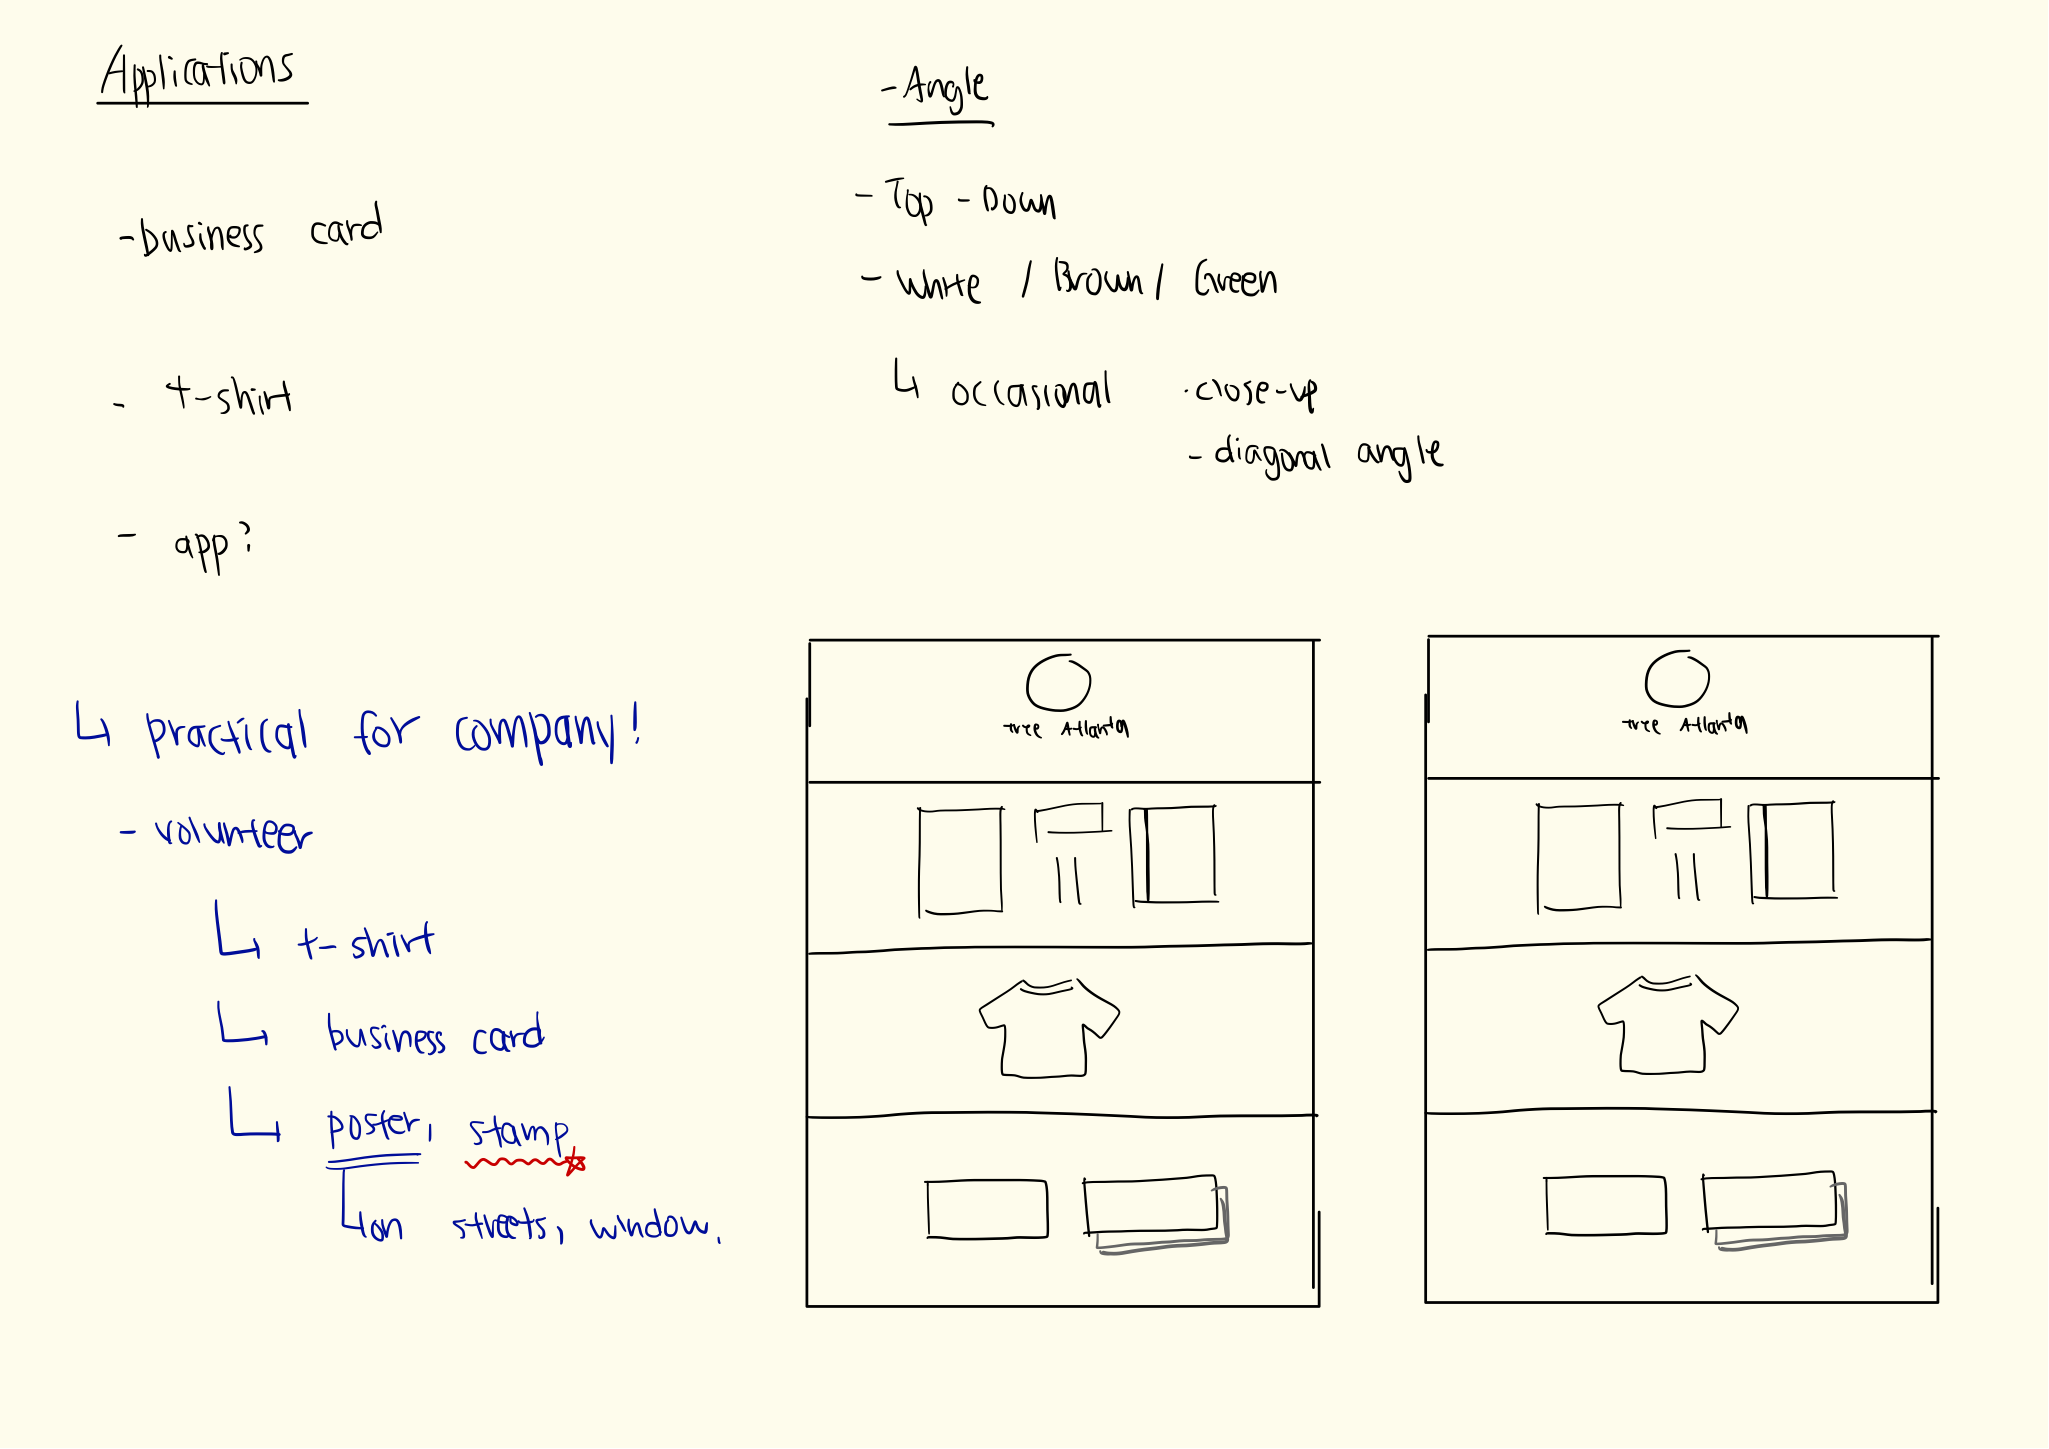 Applications
- business card
- t-shirt
- app?
↳ practical for company!
- volunteer
↳ t-shirt
↳ business card
↳ poster, stamp
↳ on streets, window.
- Angle
- Top - Down
- White / Brown / Green
↳ occasional · close-up
- diagonal angle
tree Atlanta
tree Atlanta